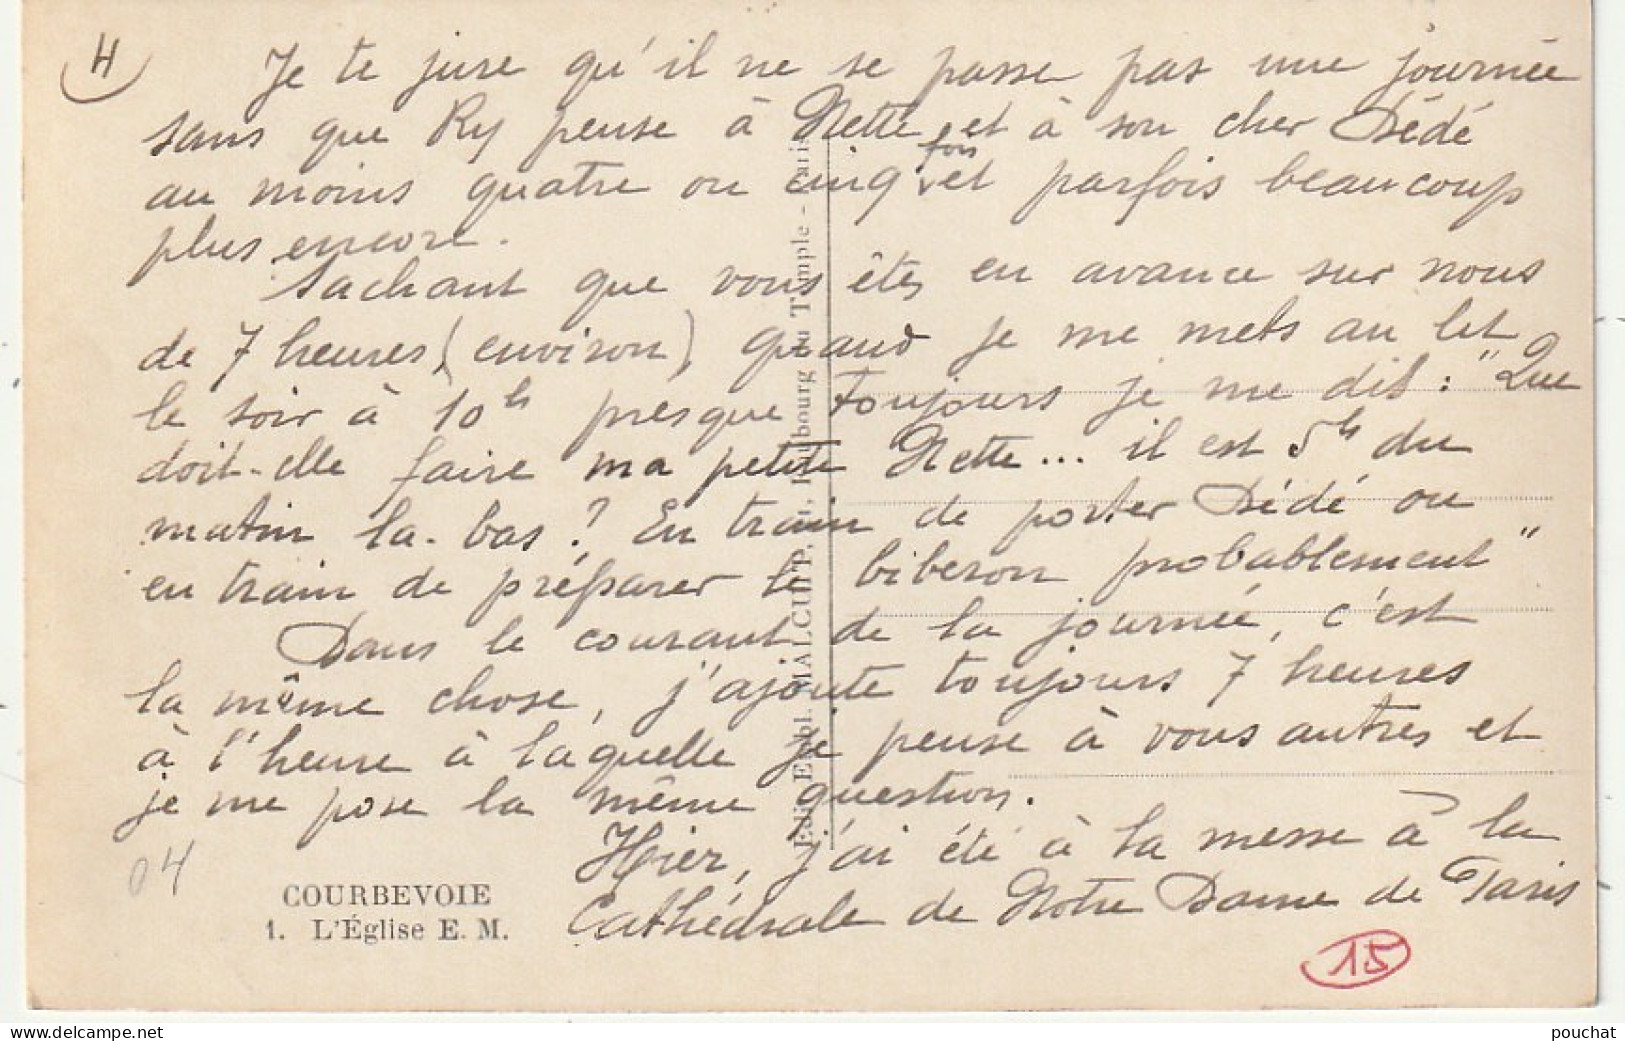 H
Je te jure qu'il ne se passe pas une journée
sans que Ry pense à Nette et à son cher Dédé
au moins quatre ou cinq fois et parfois beaucoup
plus encore.
Sachant que vous êtes en avance sur nous
de 7 heures (environ), quand je me mets au lit
le soir à 10hs presque toujours je me dis : "Que
doit-elle faire ma petite Nette... il est 5hs du
matin la-bas ? En train de porter Dédé ou
en train de préparer le biberon probablement"
Dans le courant de la journée, c'est
la même chose, j'ajoute toujours 7 heures
à l'heure à laquelle je pense à vous autres et
je me pose la même question.
Hier, j'ai été à la messe à la
Cathédrale de Notre Dame de Paris
04
COURBEVOIE
1. L'Église E. M.
15
Édit. Établ. MALCUIT, Faubourg du Temple - Paris
www.delcampe.net
pouchat